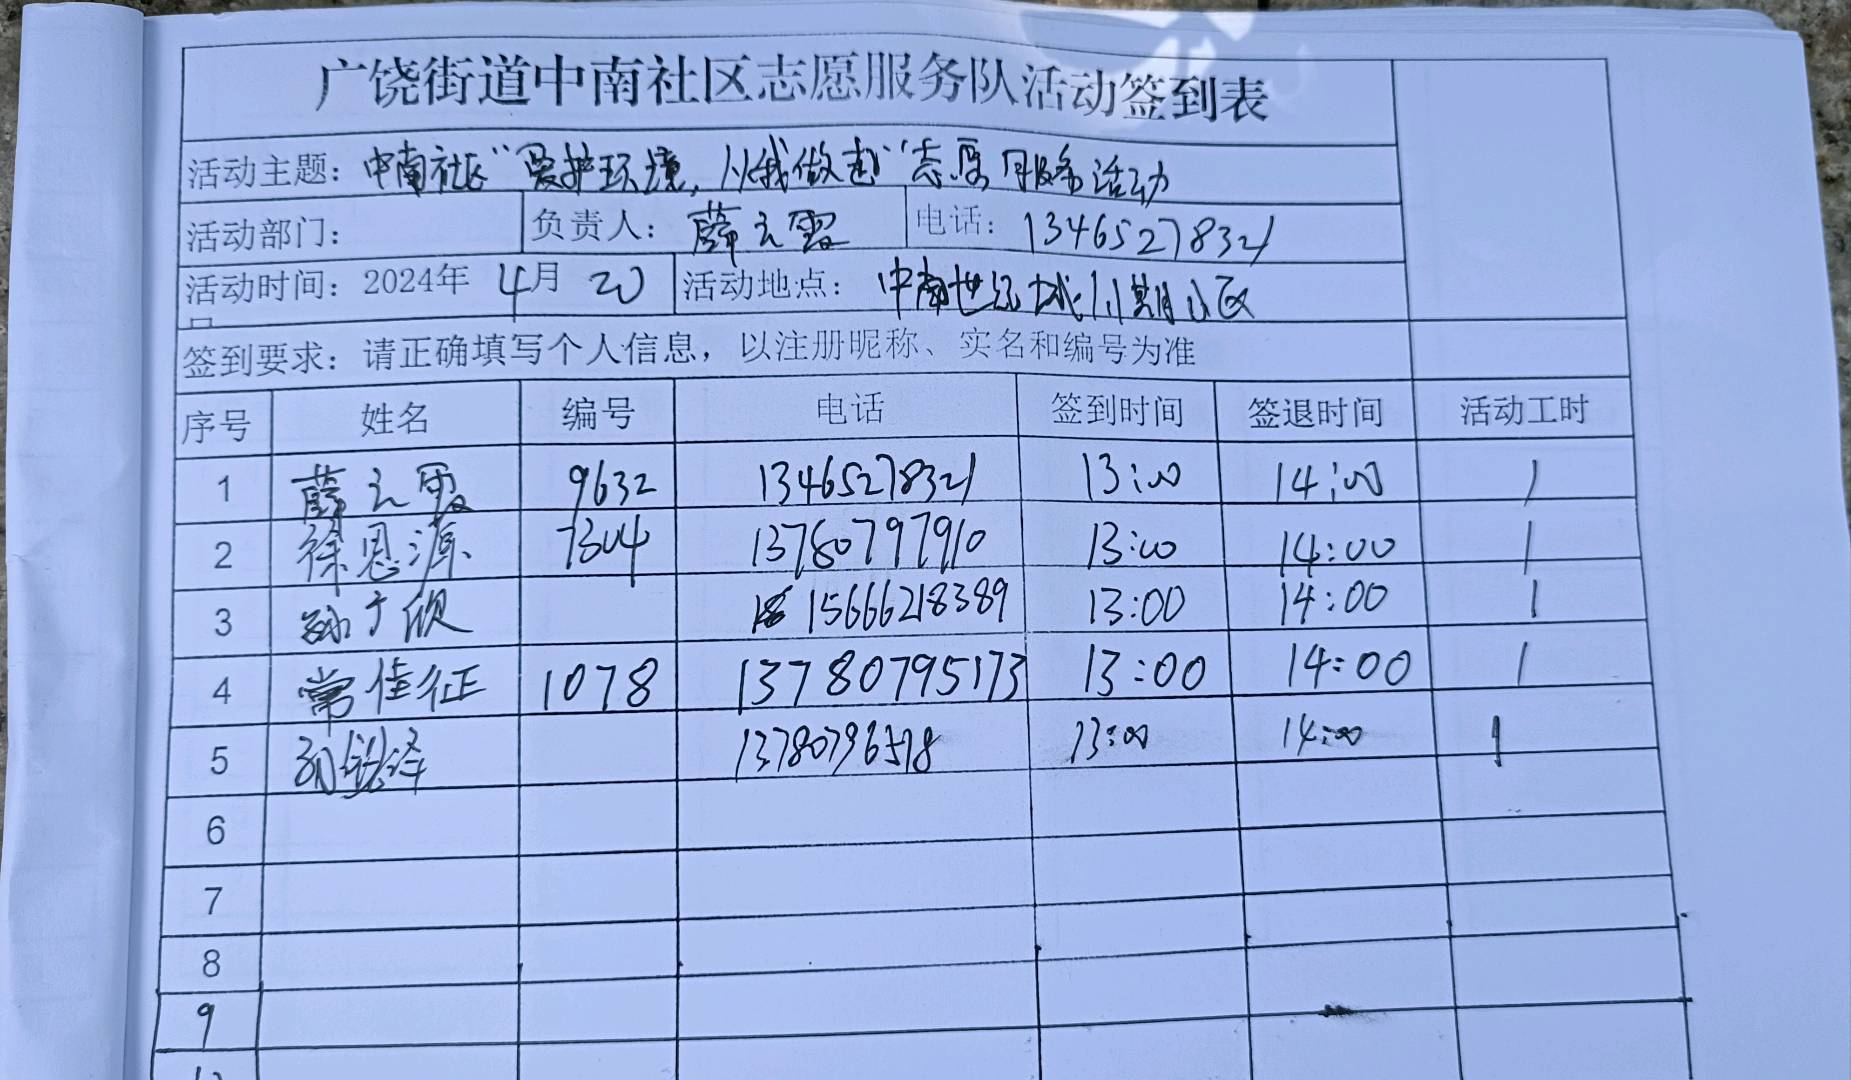 广饶街道中南社区志愿服务队活动签到表
活动主题：中南社区“爱护环境，从我做起”志愿服务活动
活动部门： 负责人：薛云霞 电话：13465278321
活动时间：2024年 4月 20 活动地点：中南世纪城小区
签到要求：请正确填写个人信息，以注册昵称、实名和编号为准
序号 姓名 编号 电话 签到时间 签退时间 活动工时
1 薛云霞 9632 13465278321 13:00 14:00 1
2 徐恩源 7304 13780797910 13:00 14:00 1
3 孙于欣 15666218389 13:00 14:00 1
4 常佳征 1078 13780795173 13:00 14:00 1
5 泽 13780796518 13:00 14:00 1
6
7
8
9